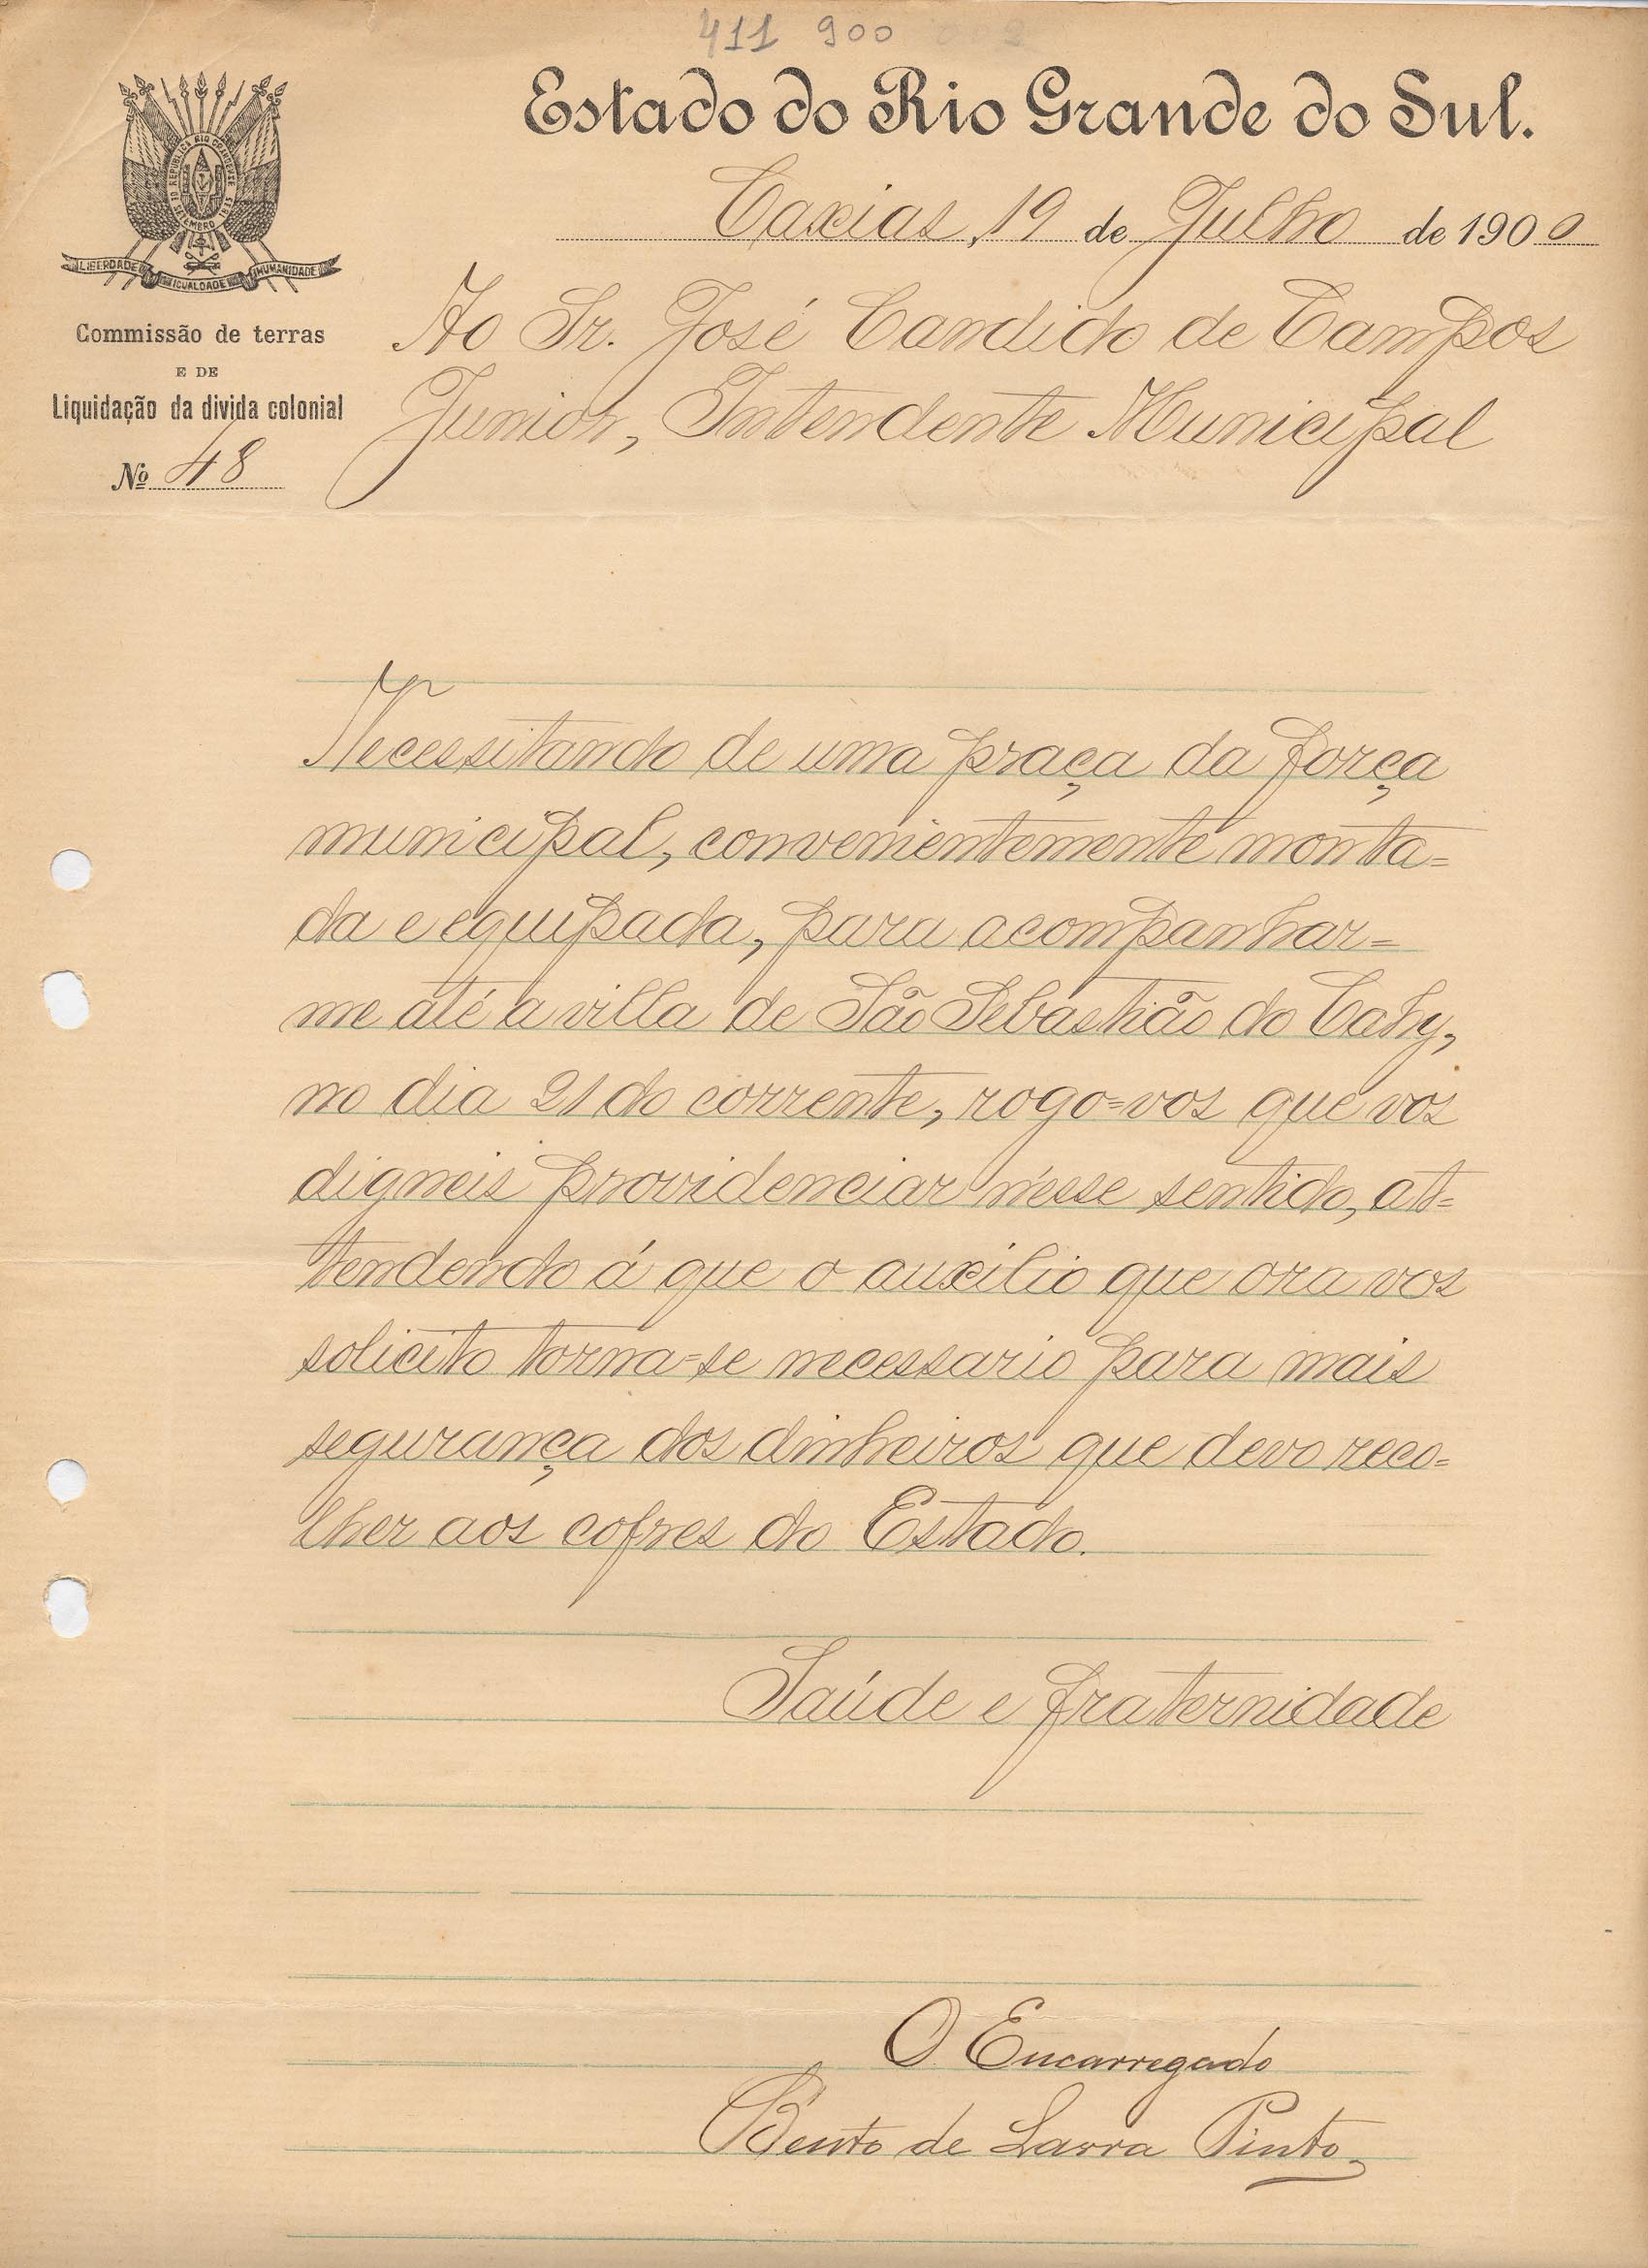 411 900 002
Estado do Rio Grande do Sul.
Caxias, 19 de Julho de 1900
REPUBLICA RIO GRANDENSE
20 SETEMBRO 1835
LIBERDADE IGUALDADE HUMANIDADE
Commissão de terras
E DE
Liquidação da divida colonial
Nº 48
Ao Sr. José Candido de Campos
Junior, Intendente Municipal
Necessitando de uma praça da força
municipal, convenientemente monta=
da e equipada, para acompanhar=
me até a villa de São Sebastião do Cahy,
no dia 21 do corrente, rogo=vos que vos
digneis providenciar n'esse sentido, at=
tendendo á que o auxilio que ora vos
solicito torna=se necessario para mais
segurança dos dinheiros que devo reco=
lher aos cofres do Estado.
Saúde e fraternidade
O Encarregado
Bento de Lavra Pinto